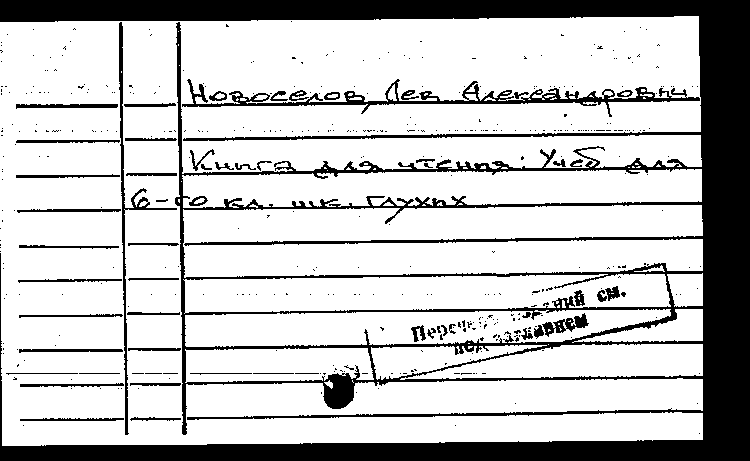 Новоселов, Лев Александрович
Книга для чтения: Учеб для
6-го кл. шк. глухих
Перечень изданий см.
под заглавием